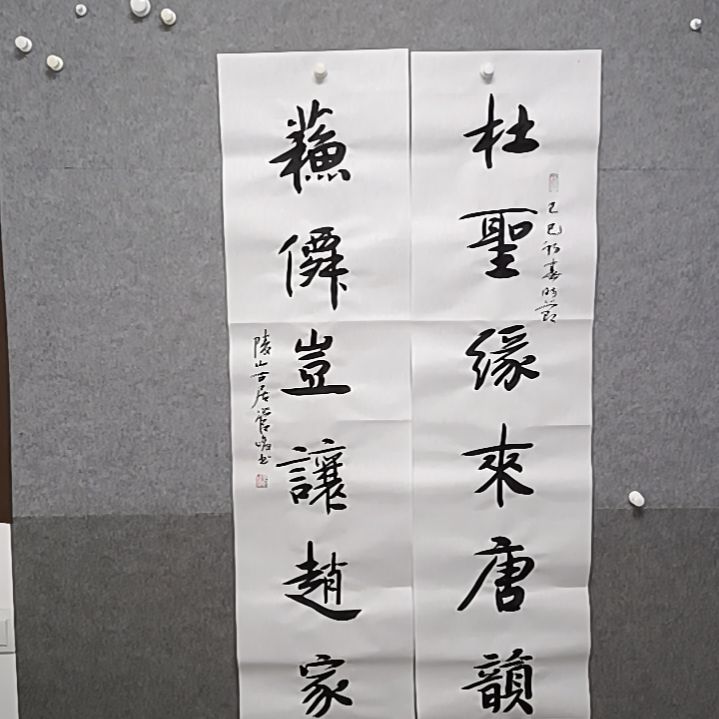 杜聖緣來唐韻
乙巳初春時節
蘓僊豈讓趙家
陵山古居管峰书